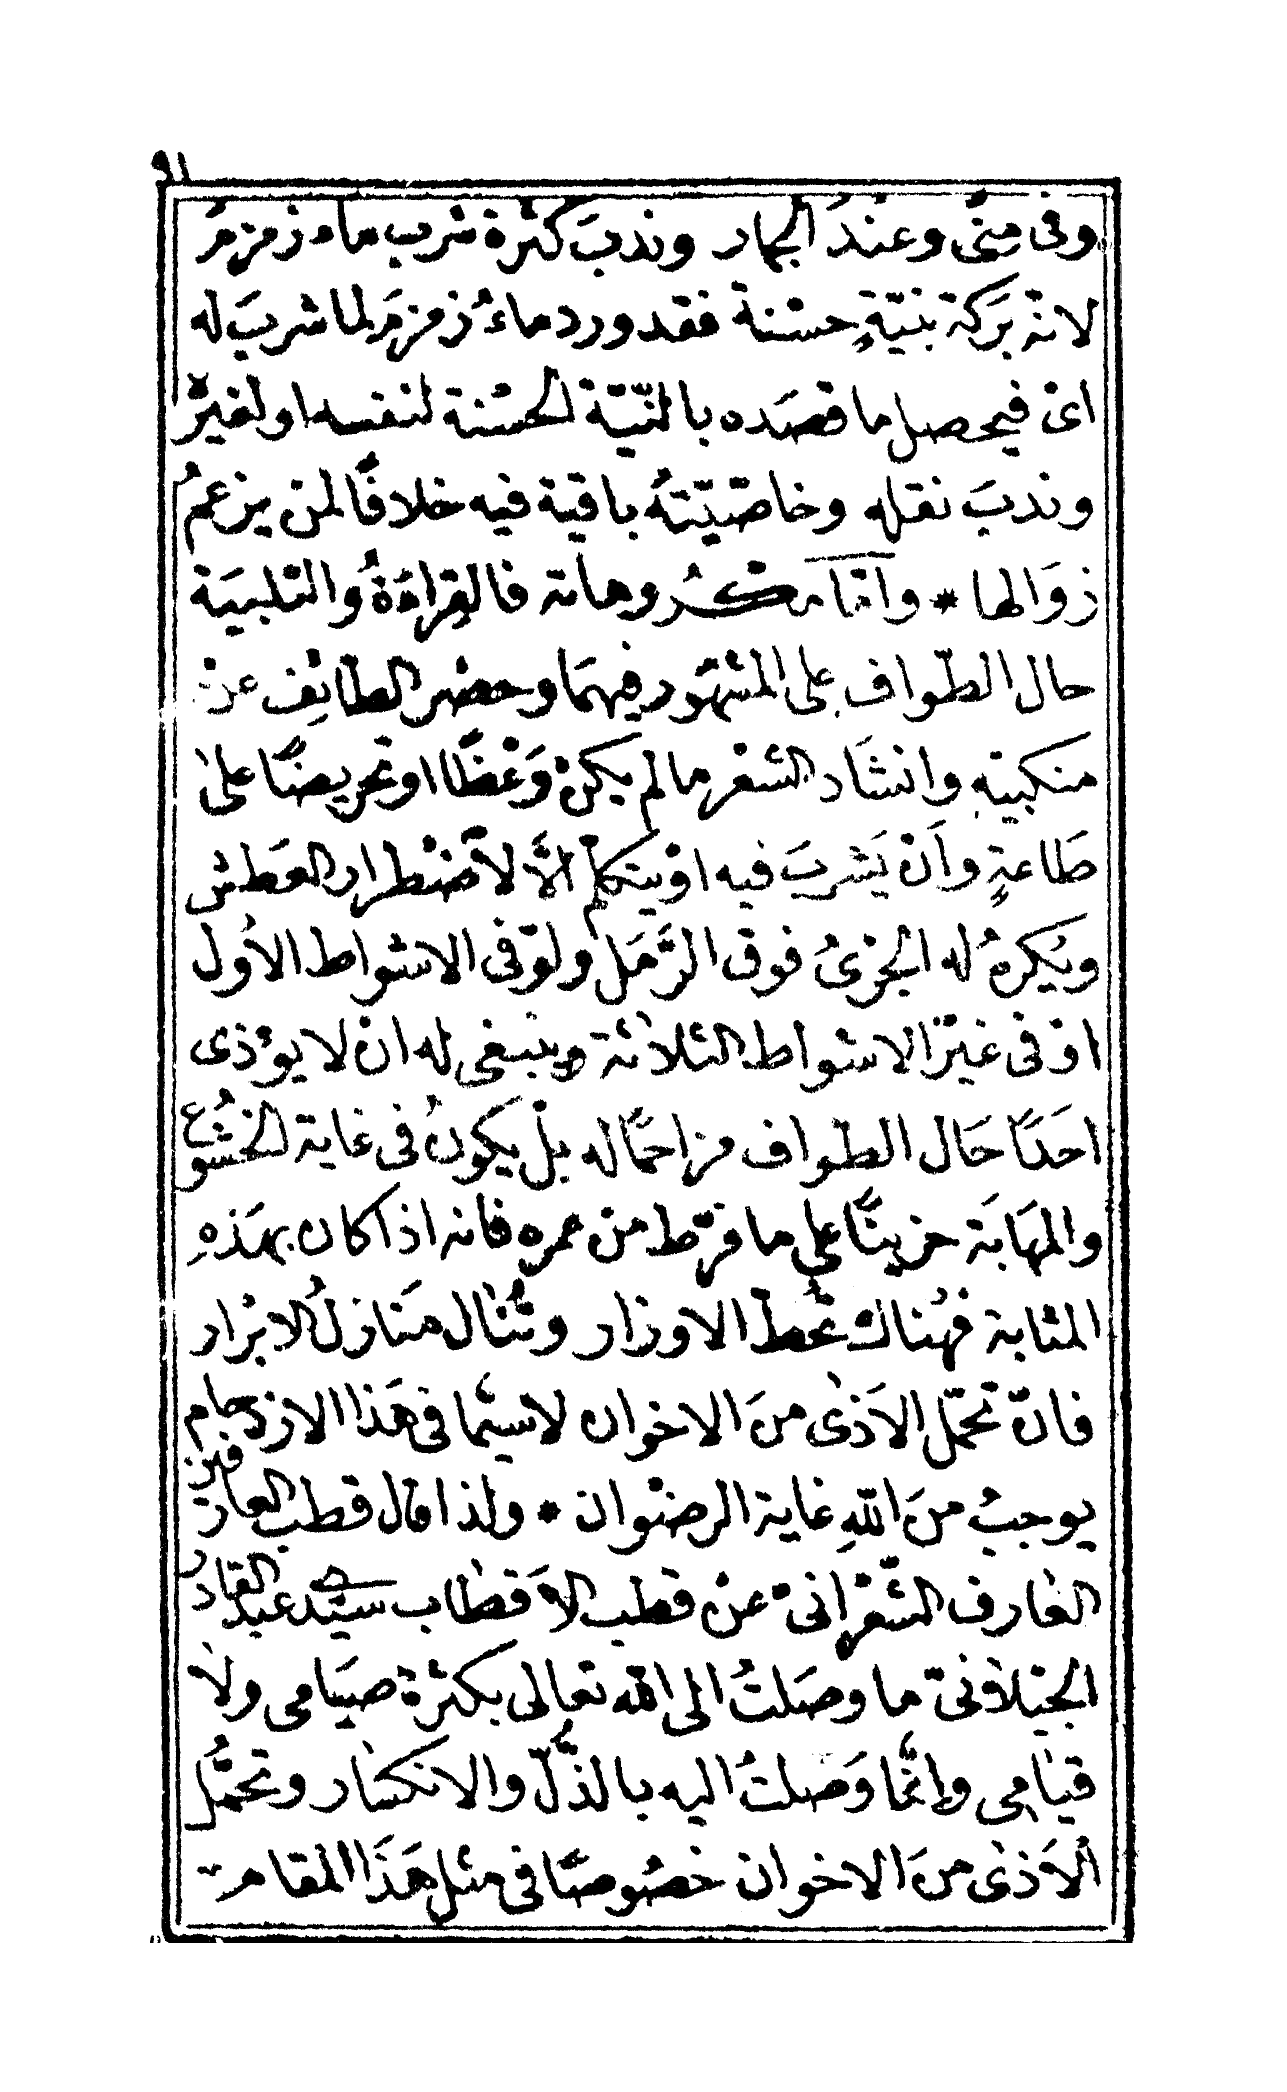 ٩١
وفى مِنًى وعندُ الجمار وندبَ كثرة شرب ماء زمزمَ
لانهْ بَركة بنيّةٍ حسْنة فقد ورد ماءُ زمزمَ لما شربَ له
اىْ فيحصل ما قصَده بالنّيّة الحسْنة لنفسه او لغيرْ
وندبَ نقله وخاصّيّتهُ باقية فيه خلافًا لمن يزعمُ
زوَالها * وامّا مكْرُوهاته فالقِراءَةُ والتلبيَة
حال الطواف على المشهور فيهمَا وحضْر الطائِف عنْ
منكبيْهِ وانشَاد الشعْر ما لم يكنْ وَعْظًا او تحريضًا علىٰ
طَاعةٍ وأنْ يَشربَ فيه اوْ يتكلم الّا لاضْطرار العَطش
ويُكرهُ له الجرْىُ فوق الرَّمَل ولوْ فى الاشواط الأول
اوْ فى غيْر الاشواط الثلاثة وينبغى له انْ لا يوْذى
احَدًا حَال الطواف مزاحمًا له بلْ يكونُ فى غاية الخشُوع
والمهَابَة حزينًا على ما فرّط منْ عمره فانه اذا كان بهَذهِ
المثابة فهُناك تُحَطّ الاوزار وتُنَال مَنازلُ الابْرار
فانّ تحمّل الاَذىٰ منَ الاخوان لا سيّما فى هَذا الازدحام
يوجبُ منَ اللّهِ غاية الرضْوان * ولذا قال قطب العارفين
العارف الشّعْرانىْ عنْ قطب الأقطاب سيّد عبد القادرُ
الجيْلانىّ ما وصَلتُ الى اللّه تعالى بكثرة صيَامى ولا
قيامى وانمّا وَصَلتُ اليه بالذُّلّ والانكسار وتحمُّل
الاَذىٰ منَ الاخوان خصُوصًا فى مثل هَذا المقام